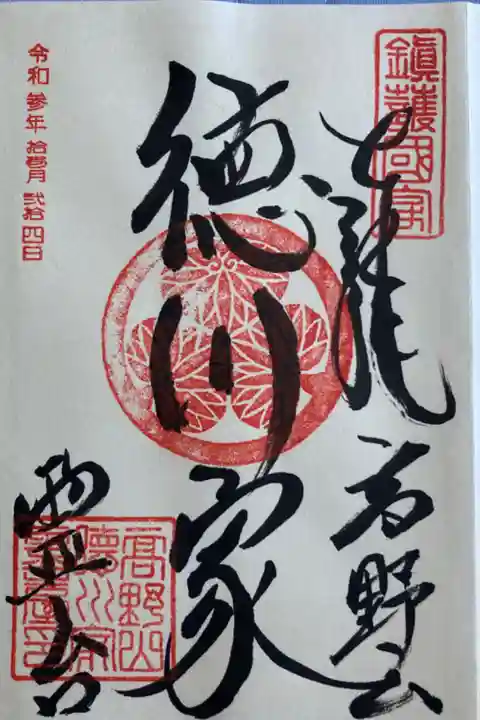 鎮護國家
高野山
徳川家
霊台
高野山
徳川家
令和参年 拾壹月 弐拾四日